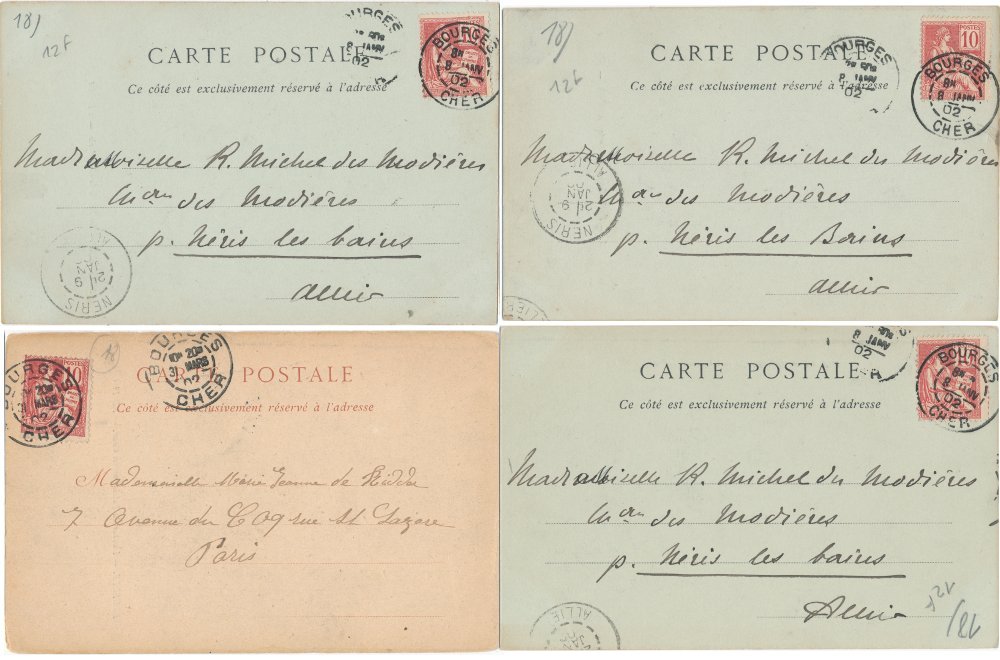 18)
12f
CARTE POSTALE
Ce côté est exclusivement réservé à l'adresse
BOURGES
8 JANV
02
CHER
BOURGES
8 JANV
02
Mademoiselle R. Michel des Modières
des Modières
p. Néris les bains
Allier
NERIS
9
JAN
18)
12f
CARTE POSTALE
Ce côté est exclusivement réservé à l'adresse
POSTES
10
BOURGES
8 JANV
02
CHER
BOURGES
8 JANV
02
Mademoiselle R. Michel des Modières
des Modières
p. Néris les Bains
Allier
NERIS
9
JAN
ALLIER
18
CARTE POSTALE
Ce côté est exclusivement réservé à l'adresse
POSTES
10
BOURGES
31 MARS
02
CHER
BOURGES
31 MARS
02
CHER
Mademoiselle Marie Jeanne de
7 Avenue du Coq rue St Lazare
Paris
CARTE POSTALE
Ce côté est exclusivement réservé à l'adresse
BOURGES
8 JANV
02
CHER
8 JANV
02
Mademoiselle R. Michel des Modières
des Modières
p. Néris les bains
Allier
12f
18)
ALLIE
JAN